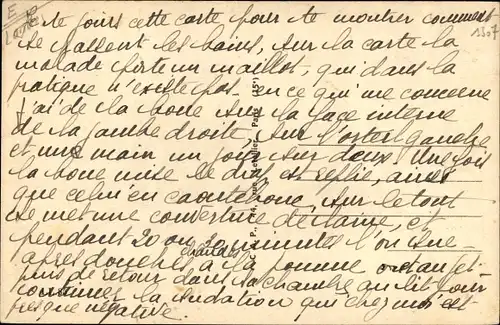 Je te jours cette carte pour te montrer comment
se passent les bains, sur la carte la
malade porte un maillot, qui dans la
pratique n'existe pas. en ce qui me concerne
j'ai de la boue sur la face interne
de la jambe droite, sur l'orteil gauche
et une main un jour sur deux. Une fois
la boue mise le drap est replié, ainsi
que celui en caoutchouc, sur le tout
se met une couverture de laine, et
pendant 20 ou minutes l'on sue
après douches à la pomme chaudes
puis de retour dans la chambre au lit pour
continuer la sudation qui chez moi est
presque négative.
1507